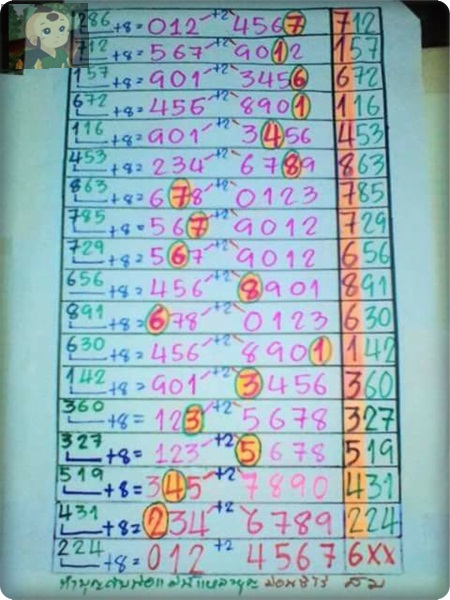 286 +8= 012 +2 4567 712
712 +8= 567 +2 9012 157
157 +8= 901 +2 3456 672
672 +8= 456 +2 8901 116
116 +8= 901 +2 3456 453
453 +8= 234 +2 6789 863
863 +8= 678 0123 785
785 +8= 567 +2 9012 729
729 +8= 567 +2 9012 656
656 +8= 456 +2 8901 891
891 +8= 678 +2 0123 630
630 +8= 456 +2 8901 142
142 +8= 901 +2 3456 360
360 +8= 123 +2 5678 327
327 +8= 123 +2 5678 519
519 +8= 345 +2 7890 431
431 +8= 234 +2 6789 224
224 +8= 012 +2 4567 6XX